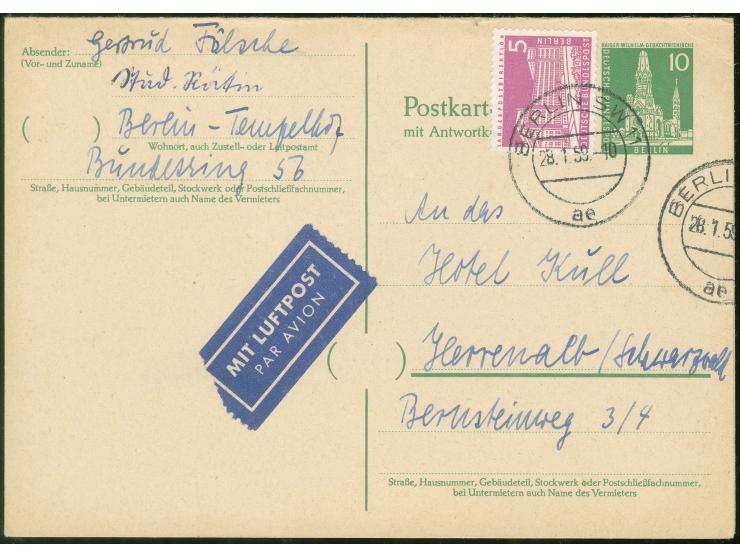 Absender:
(Vor- und Zuname)
Gertrud Fölsche
Stud. Rätin
Berlin - Tempelhof
Wohnort, auch Zustell- oder Leitpostamt
Bundesring 56
Straße, Hausnummer, Gebäudeteil, Stockwerk oder Postschließfachnummer,
bei Untermietern auch Name des Vermieters
MIT LUFTPOST
PAR AVION
5
BERLIN
DEUTSCHE BUNDESPOST
KAISER-WILHELM-GEDÄCHTNISKIRCHE
10
BERLIN
Postkart
mit Antwortk
BERLIN SW 11
28.1.59.-10
ae
BERLI
28.1.59
ae
An das
Hotel Kull
Herrenalb/Schwarzwald
Bernsteinweg 3/4
Straße, Hausnummer, Gebäudeteil, Stockwerk oder Postschließfachnummer,
bei Untermietern auch Name des Vermieters